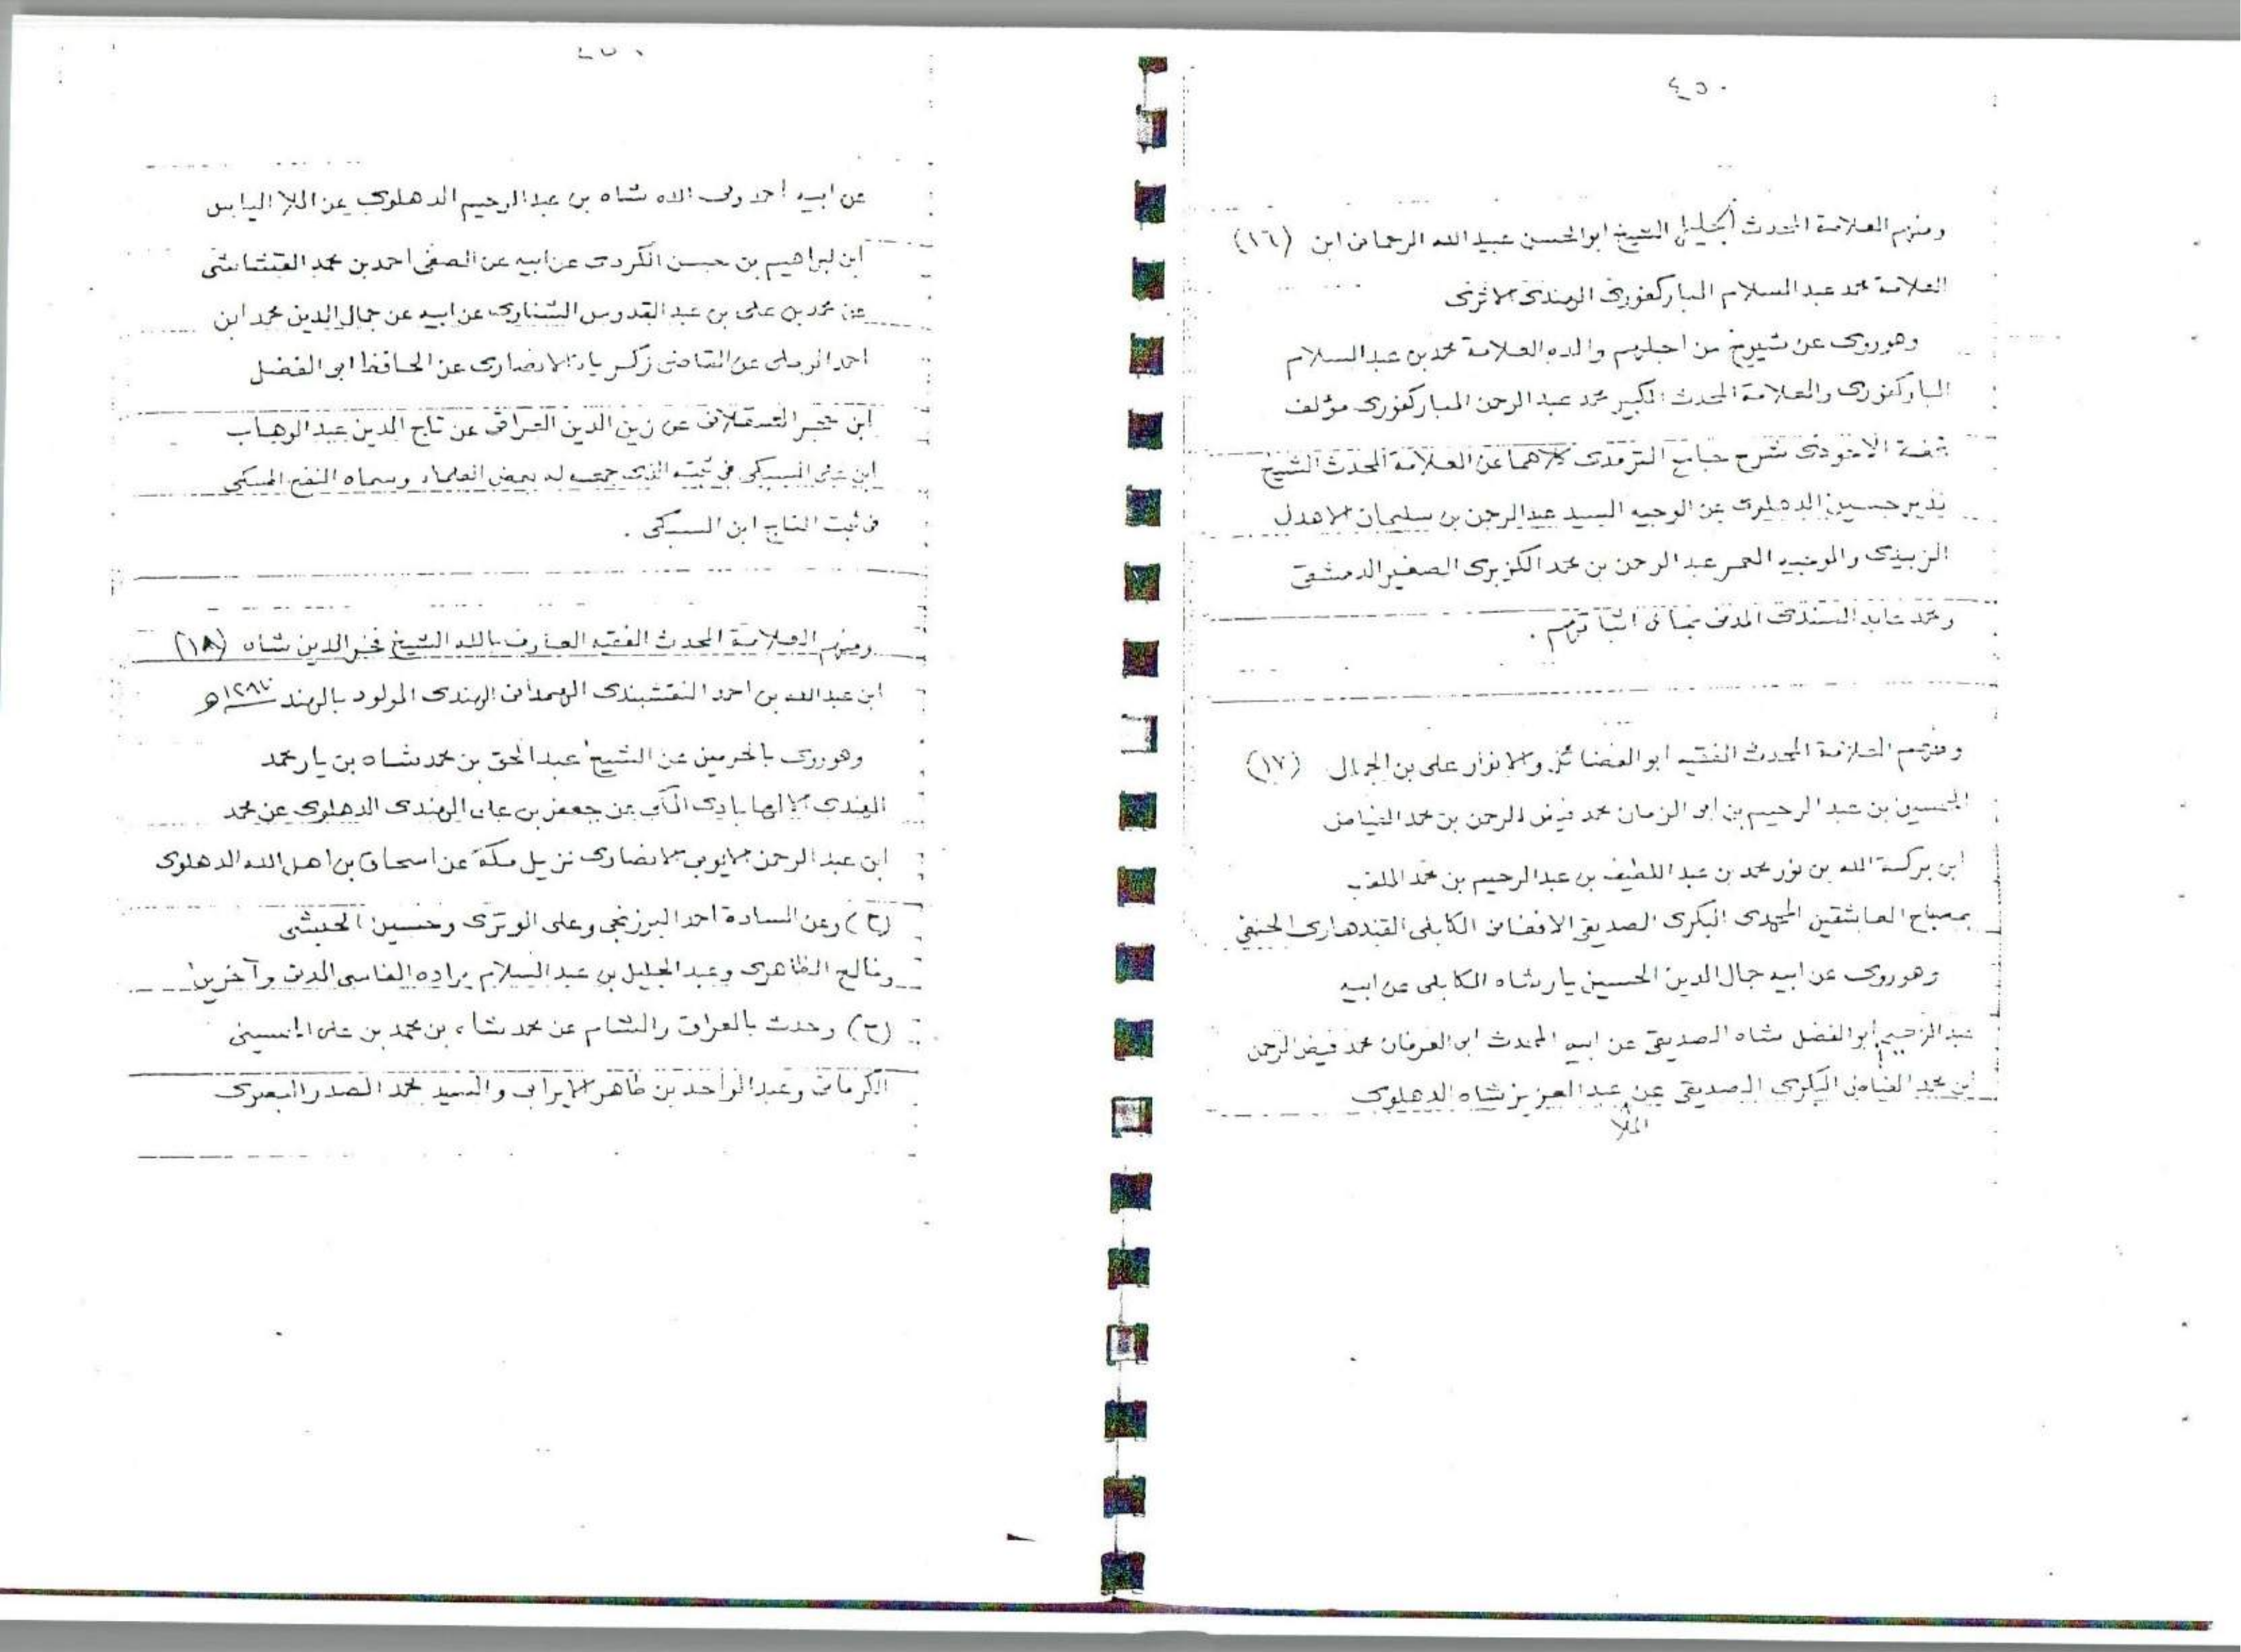 ٤٥٠
ومنهم العلامة المحدث الجليل الشيخ ابوالحسن عبيد الله الرحماني ابن (١٦)
العلامة محمد عبد السلام المباركفوري الهندي الاثري
وهو روى عن شيوخ من اجلهم والده العلامة محمد بن عبد السلام
المباركفوري والعلامة المحدث الكبير محمد عبد الرحمن المباركفوري مؤلف
تحفة الاحوذي شرح جامع الترمذي كلاهما عن العلامة المحدث الشيخ
نذير حسين الدهلوي عن الوجيه السيد عبد الرحمن بن سليمان الاهدل
الزبيدي والوجيه المعمر عبد الرحمن بن محمد الكزبري الصغير الدمشقي
ومحمد عابد السندي المدني بما في اثباتهم .
ومنهم العلامة المحدث الفقيه ابو الفضائل والانوار علي بن الجمال (١٧)
الحسين بن عبد الرحيم بن ابي الزمان محمد فيض الرحمن بن محمد الفياض
ابن بركة الله بن نور محمد بن عبد اللطيف بن عبد الرحيم بن محمد الملقب
بمصباح العاشقين المحمدي البكري الصديقي الافغاني الكابلي القندهاري الحنفي
وهو روى عن ابيه جمال الدين الحسين يار شاه الكابلي عن ابيه
عبد الرحيم ابو الفضل شاه الصديقي عن ابيه المحدث ابي العرفان محمد فيض الرحمن
ابن محمد الفياض البكري الصديقي عن عبد العزيز شاه الدهلوي
الملا
عن ابيه احمد ولي الله شاه بن عبد الرحيم الدهلوي عن الملا الياس
ابن ابراهيم بن حسن الكردي عن ابيه عن الصفي احمد بن محمد القشاشي
عن محمد بن علي بن عبد القدوس الشناوي عن ابيه عن جمال الدين محمد ابن
احمد الرملي عن القاضي زكريا الانصاري عن الحافظ ابي الفضل
ابن حجر العسقلاني عن زين الدين العراقي عن تاج الدين عبد الوهاب
ابن علي السبكي في ثبته الذي جمعه له بعض العلماء وسماه النفح المسكي
في ثبت التاج ابن السبكي .
ومنهم العلامة المحدث الفقيه العارف بالله الشيخ فخر الدين شاه (١٨)
ابن عبد الله بن احمد النقشبندي الهمداني الهندي المولود بالهند هـ
وهو روى بالحرمين عن الشيخ عبد الحق بن محمد شاه بن يار محمد
الهندي الالهابادي المكي عن جعفر بن علي الهندي الدهلوي عن محمد
ابن عبد الرحمن الايوبي الانصاري نزيل مكة عن اسحاق بن اهل الله الدهلوي
(ح) وعن السادة احمد البرزنجي وعلي الوتري وحسين الحبشي
وفالح الظاهري وعبد الجليل بن عبد السلام براده الفاسي المدني وآخرين
(ح) وحدث بالعراق والشام عن محمد شاه بن محمد بن علي الحسيني
الكرماني وعبد الواحد بن طاهر الايراني والسيد محمد الصدر البصري